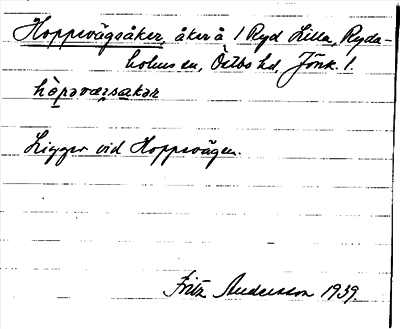 Hoppsvägsåker, åker å 1 Ryd Lilla, Ryda-
holms sn, Östbo hd, Jönk. l.
hòpsvæ̀gsakər
Ligger vid Hoppsvägen.
Fritz Andersson 1939.